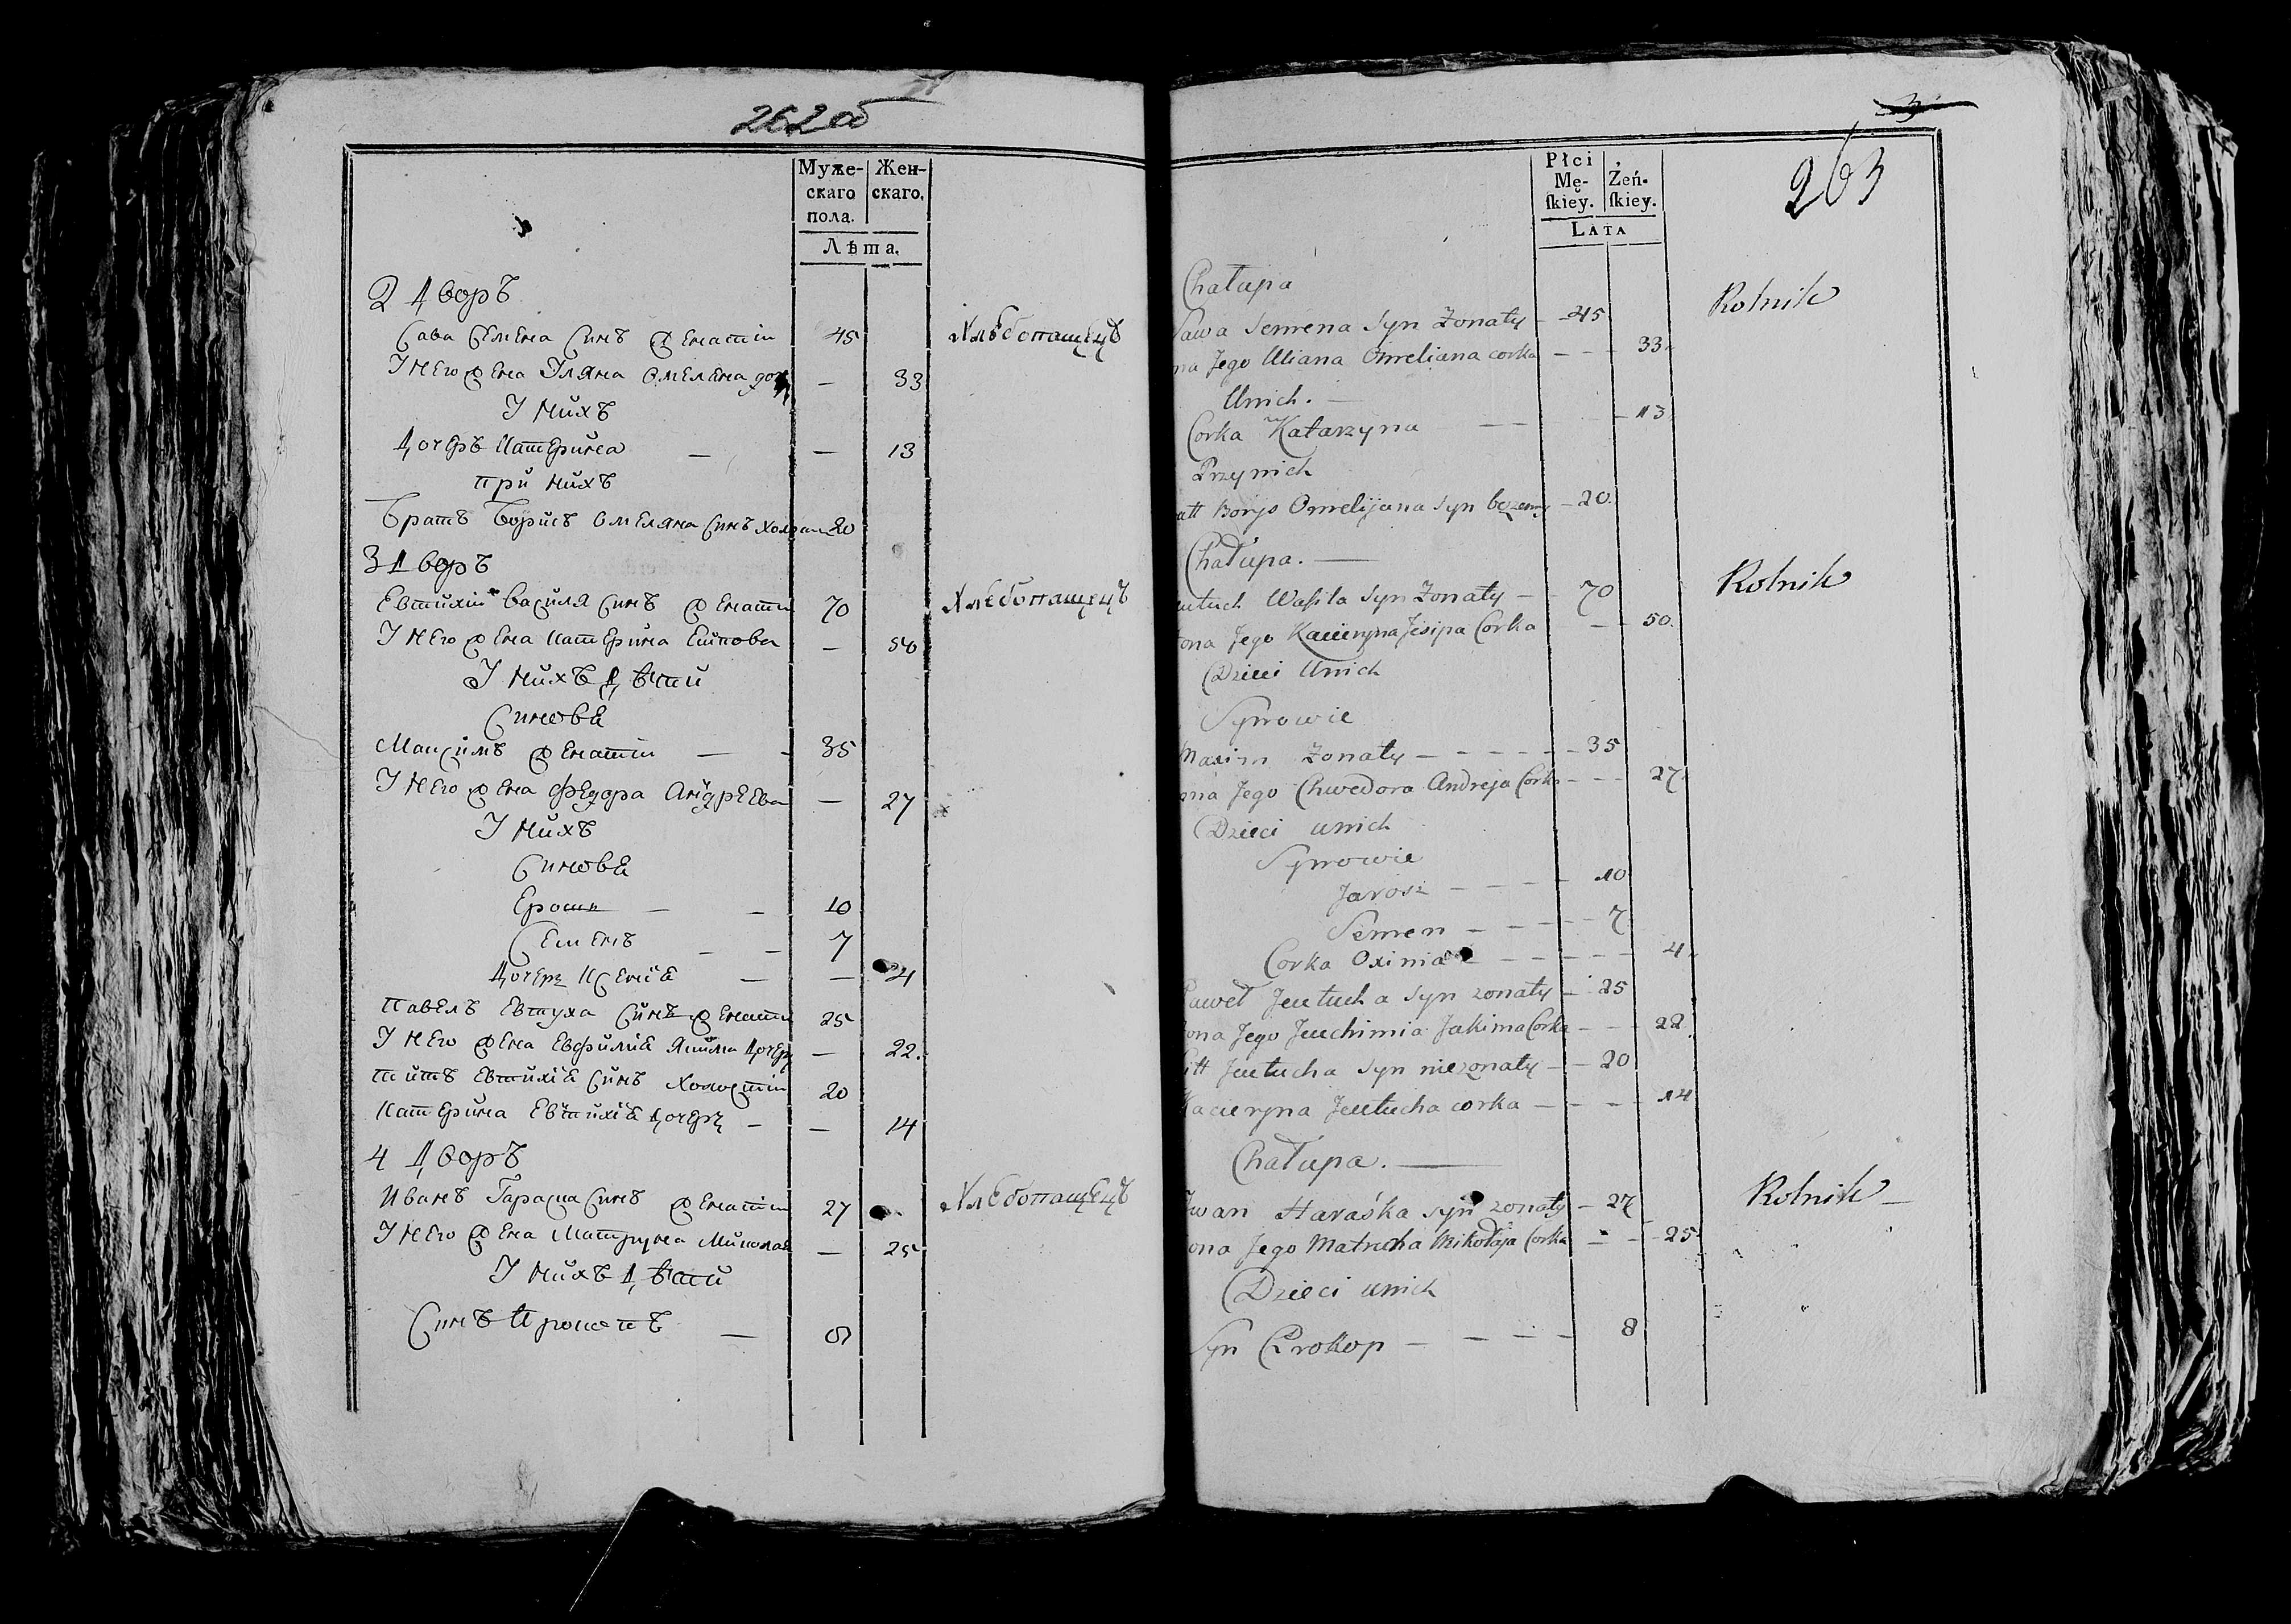 262 об
Муже-
скаго
пола.
Жен-
скаго.
Лѣта.
2 Дворъ
Сава Семена Синъ Женатій 45 Хлѣбопашецъ
У Него Жена Уляна Омеляна доч — 33
У Нихъ
Дочеръ Катерина — — 13
при нихъ
Братъ Борисъ Омеляна Синъ холост 20
3 Дворъ
Евтихій Василя Синъ Женати 70 Хлебопашецъ
У Него Жена Катерина Есипова — 50
У Нихъ Дѣти
Синовѣ
Максимъ Женатій — - 35
У Него Жена Федора Андреева — 27
У Нихъ
Синовѣ
Ерошъ — - 10
Семенъ - - 7
Дочеръ Ксеніѣ — — 4
Павелъ Евтуха Синъ Женати 25
У Него Жена Евфиміѣ Якима Дочер — 22.
Титъ Евтихіѣ Синъ холостій 20
Катерина Евтихіѣ Дочеръ - — 14
4 Дворъ
Иванъ Гараска Синъ Женатій 27 Хлебопашецъ
У Него Жена Матруна Миколая — 25
У Нихъ Дѣти
Синъ Прокопъ — 8
3
263
Płci
Mę-
ſkiey.
Żeń-
ſkiey.
LATA
Chałupa
Sawa Semena Syn Żonaty - 45 Rolnik
na Jego Uliana Omeliana corka - - - 33.
Unich. —
Corka Katarzyna — — - 13
Przynich
att Borys Omelijana Syn bezenny - 20.
Chałupa. —
utuch Wasila Syn Żonaty - - 70 Rolnik
ona Jego Kacieryna Jesipa Corka - - 50.
Dzieci Unich
Synowie
Maxim Żonaty - - - - - - 35
nia Jego Chwedora Andreja Corka - - - 27.
Dzieci unich
Synowie
Jarosz - - - - 10
Semen - - - - 7
Corka Oxinia - - - - - - 4.
Paweł Jeutucha Syn zonaty - - 25
ona Jego Jeuchimia Jakima Corka - - - 22.
itt Jeutucha Syn niezonaty - - 20
Kacieryna Jeutucha corka - - - - 14
Chałupa. ——
Iwan Haraśka Syn zonaty - 27 Rolnik —
ona Jego Matruna Mikołaja Corka - - - 25
Dzieci unich
Syn Prokop - - - - 8